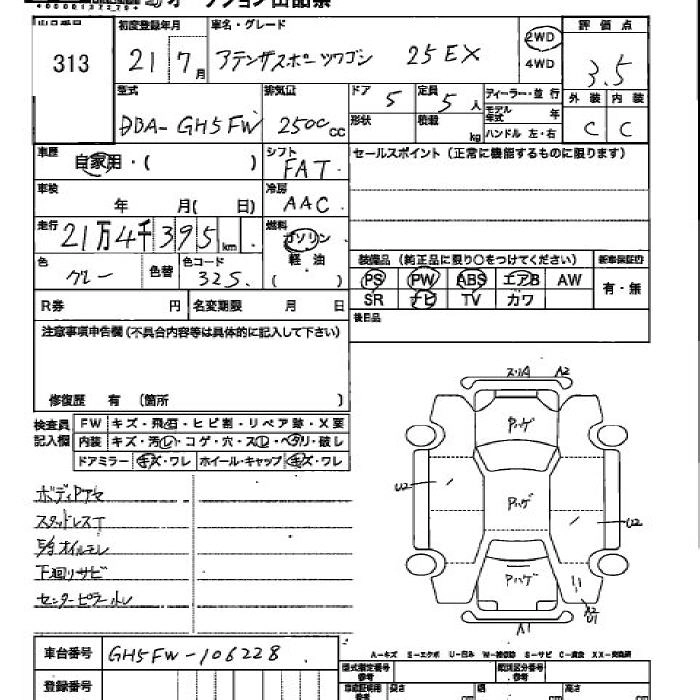 オークション出品票
出品番号 初度登録年月 車名・グレード 評価点
313 21 7月 アテンザスポーツワゴン 25EX 2WD 3.5
4WD
型式 排気量 ドア 定員 ディーラー・並行 外装 内装
DBA-GH5FW 2500cc 5 5人 モデル年式 年 C C
形状 積載 kg ハンドル 左・右
車歴 自家用・( ) シフト FAT セールスポイント(正常に機能するものに限ります)
車検 年 月( 日) 冷房 AAC
走行 21万4千395km 燃料 ガソリン
軽油
( )
色 グレー 色替 色コード 32S 装備品(純正品に限り○をつけてください) 新車保証書
PS PW ABS エアB AW 有・無
SR ナビ TV カワ
R券 円 名変期限 月 日
後日品
注意事項申告欄(不具合内容等は具体的に記入して下さい)
修復歴 有 (箇所 )
検査員記入欄 FW キズ・飛石・ヒビ割・リペア跡・X要
内装 キズ・汚レ・コゲ・穴・スレ・ヘタリ・破レ
ドアミラー キズ・ワレ ホイール・キャップ キズ・ワレ
ボディPアセ
スタッドレスT
下廻リサビ
センターピラーハレ
A2
Pハゲ
U2
Pハゲ
U2
Pハゲ
A2
U1
A1
車台番号 GH5FW-106228
A-キズ E-エクボ U-凹み W-補修跡 S-サビ C-腐食 XX-交換済
登録番号
型式指定番号 参考 類別区分番号 参考
長さ cm 幅 cm 高さ cm